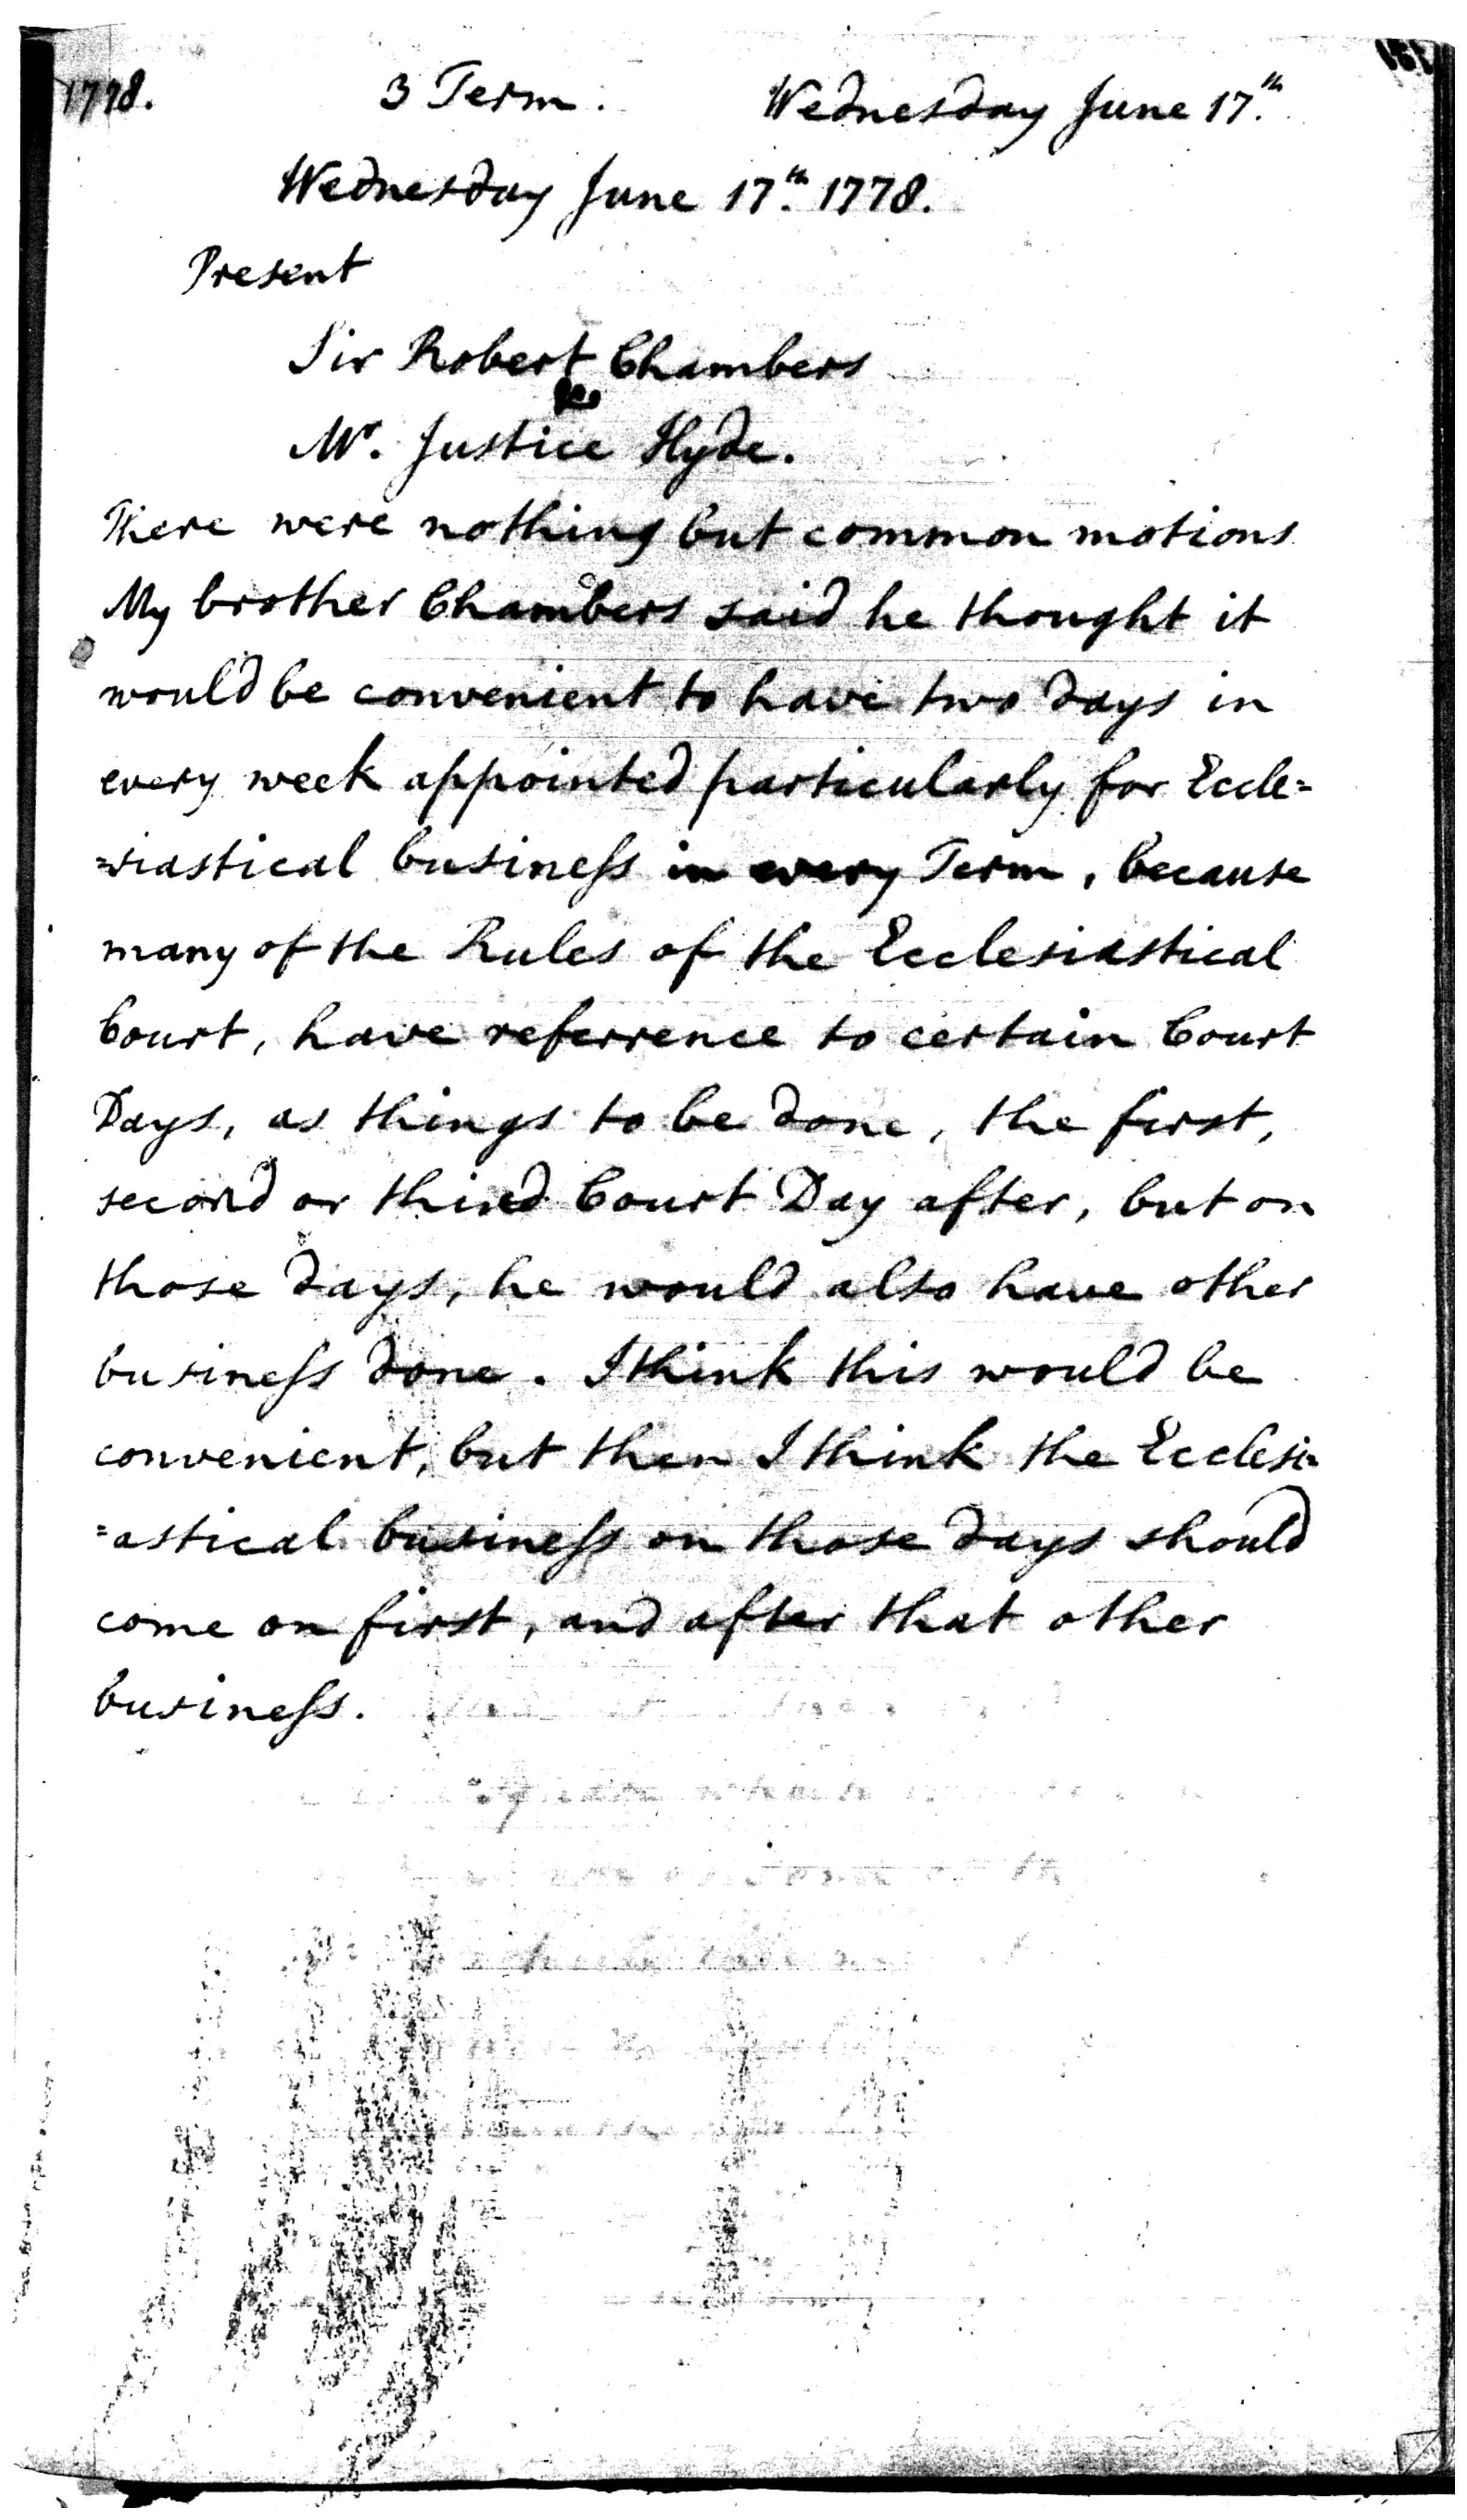 1778. 3 Term. Wednesday June 17.th
Wednesday June 17.th 1778.
Present
Sir Robert Chambers
Mr. Justice Hyde.
There were nothing but common motions
My brother Chambers said he thought it
would be convenient to have two days in
every week appointed particularly for Eccle=
=siastical busineſs in every Term, because
many of the Rules of the Ecclesiastical
Court, have referrence to certain Court
Days, as things to be done, the first,
second or third Court Day after, but on
those days, he would also have other
busineſs done. I think this would be
convenient, but then I think the Ecclesi=
=astical busineſs on those days should
come on first, and after that other
busineſs.